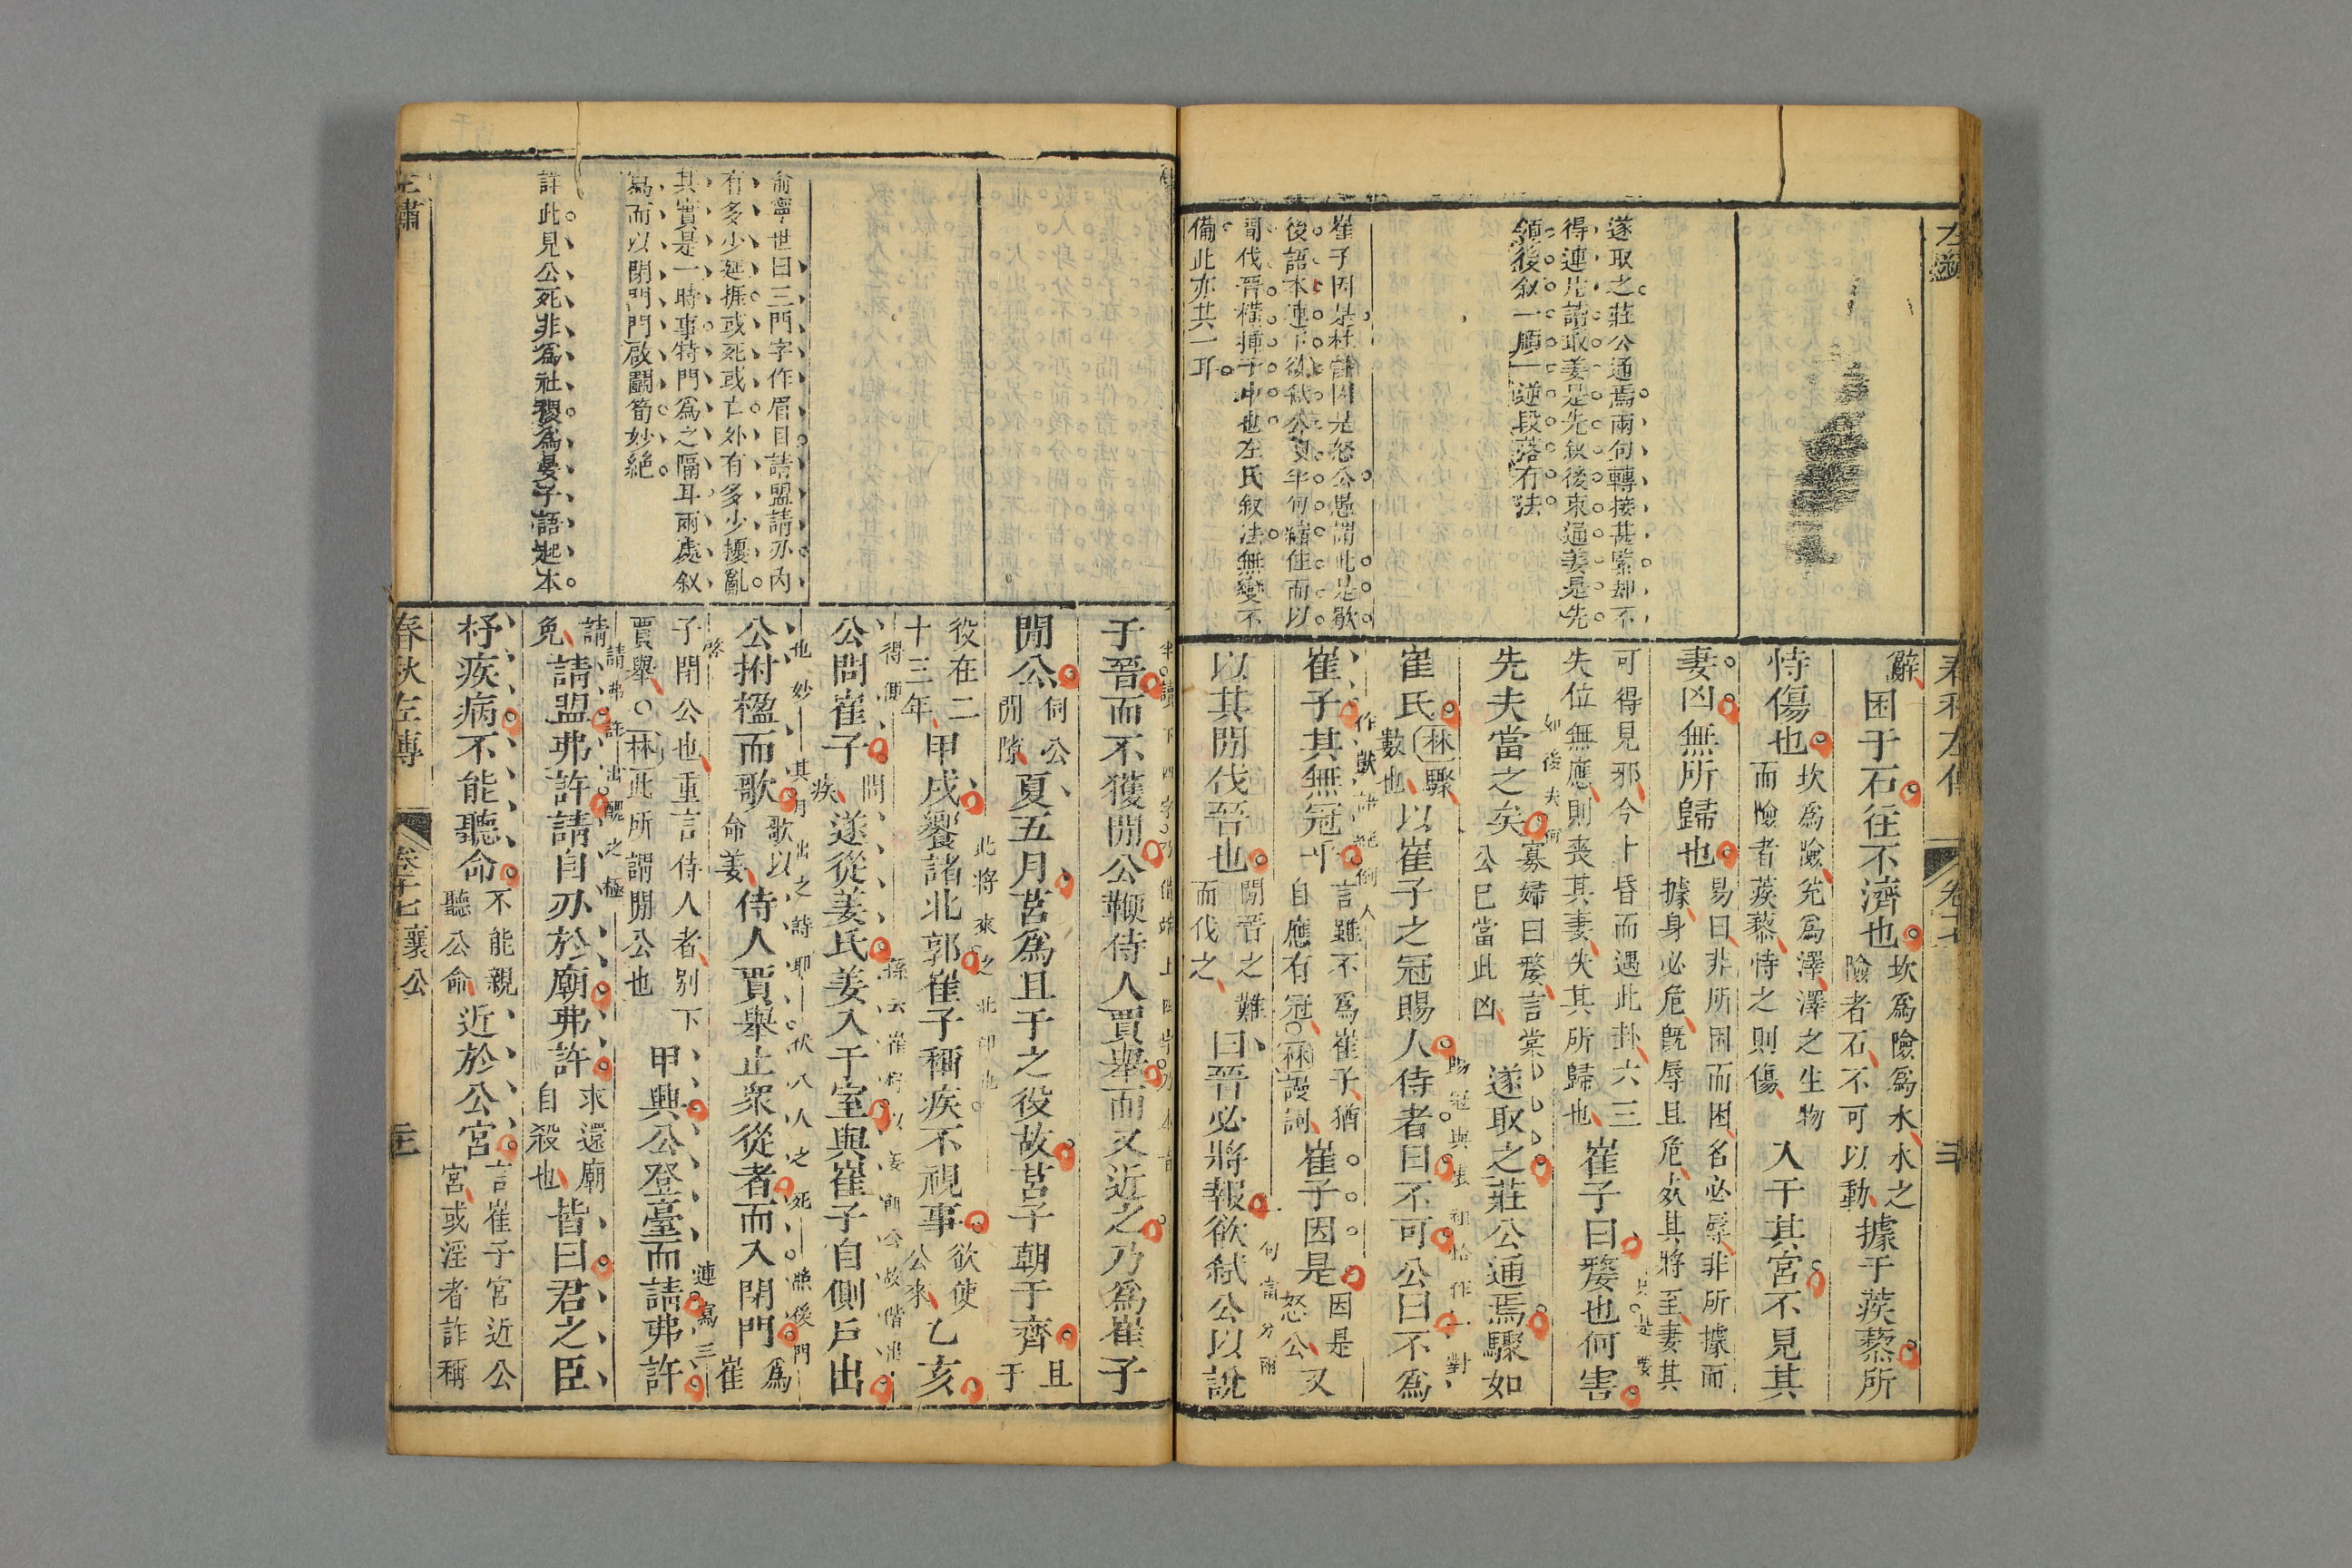 左繡
遂取之莊公通焉兩句轉接甚緊却不
得連片讀取姜是先叙後束通姜是先
領後叙一順一逆段落有法
崔子因是杜註因是怒公愚謂此是歇
後語本連下欲弑公又半句縮住而以
間伐晉橫揷于中也左氏叙法無變不
備此亦其一耳
春秋左傳
卷十七
辭困于石往不濟也坎爲險爲水水之
險者石不可以動據于蒺藜所
恃傷也坎爲險兌爲澤澤之生物
而險者蒺藜恃之則傷入于其宮不見其
妻凶無所歸也易曰非所困而困名必辱非所據而
據身必危旣辱且危死其將至妻其
可得見邪今卜昏而遇此卦六三
失位無應則喪其妻失其所歸也崔子曰嫠也何害
先夫當之矣寡婦曰嫠言棠
公已當此凶遂取之莊公通焉驟如
崔氏林驟
數也以崔子之冠賜人侍者曰不可公曰不爲
賜冠與
恰作一對
崔子其無冠乎言雖不爲崔子猶
自應有冠林謾詞崔子因是因是
怒公又
以其閒伐晉也閒晉之難
而伐之曰晉必將報欲弑公以說
子晉而不獲閒公鞭侍人賈舉而又近之乃爲崔子
閒公伺公
閒隙夏五月莒爲且于之役故莒子朝于齊且
于
役在二
十三年甲戌饗諸北郭崔子稱疾不視事欲使
公來乙亥
此將來之
公問崔子問
疾遂從姜氏姜入于室與崔子自側戶出
得便
公拊楹而歌歌以
命姜侍人賈舉止衆從者而入閉門爲
崔
也妙
伏八人之死
子閉公也重言侍人者別下
賈舉林此所謂閒公也甲興公登臺而請弗許
連寫三
請
免請盟弗許請自刃於廟弗許求還廟
自殺也皆曰君之臣
請弗許
醜之極
杼疾病不能聽命不能親
聽公命近於公宮言崔子宮近公
宮或淫者詐稱
俞寧世曰三門字作眉目請盟請刃內
有多少延捱或死或亡外有多少擾亂
其實是一時事特門爲之隔耳兩處叙
寫而以閉門門啟關筍妙絕
註此見公死非爲社稷爲晏子語起本
春秋左傳
卷十七襄公